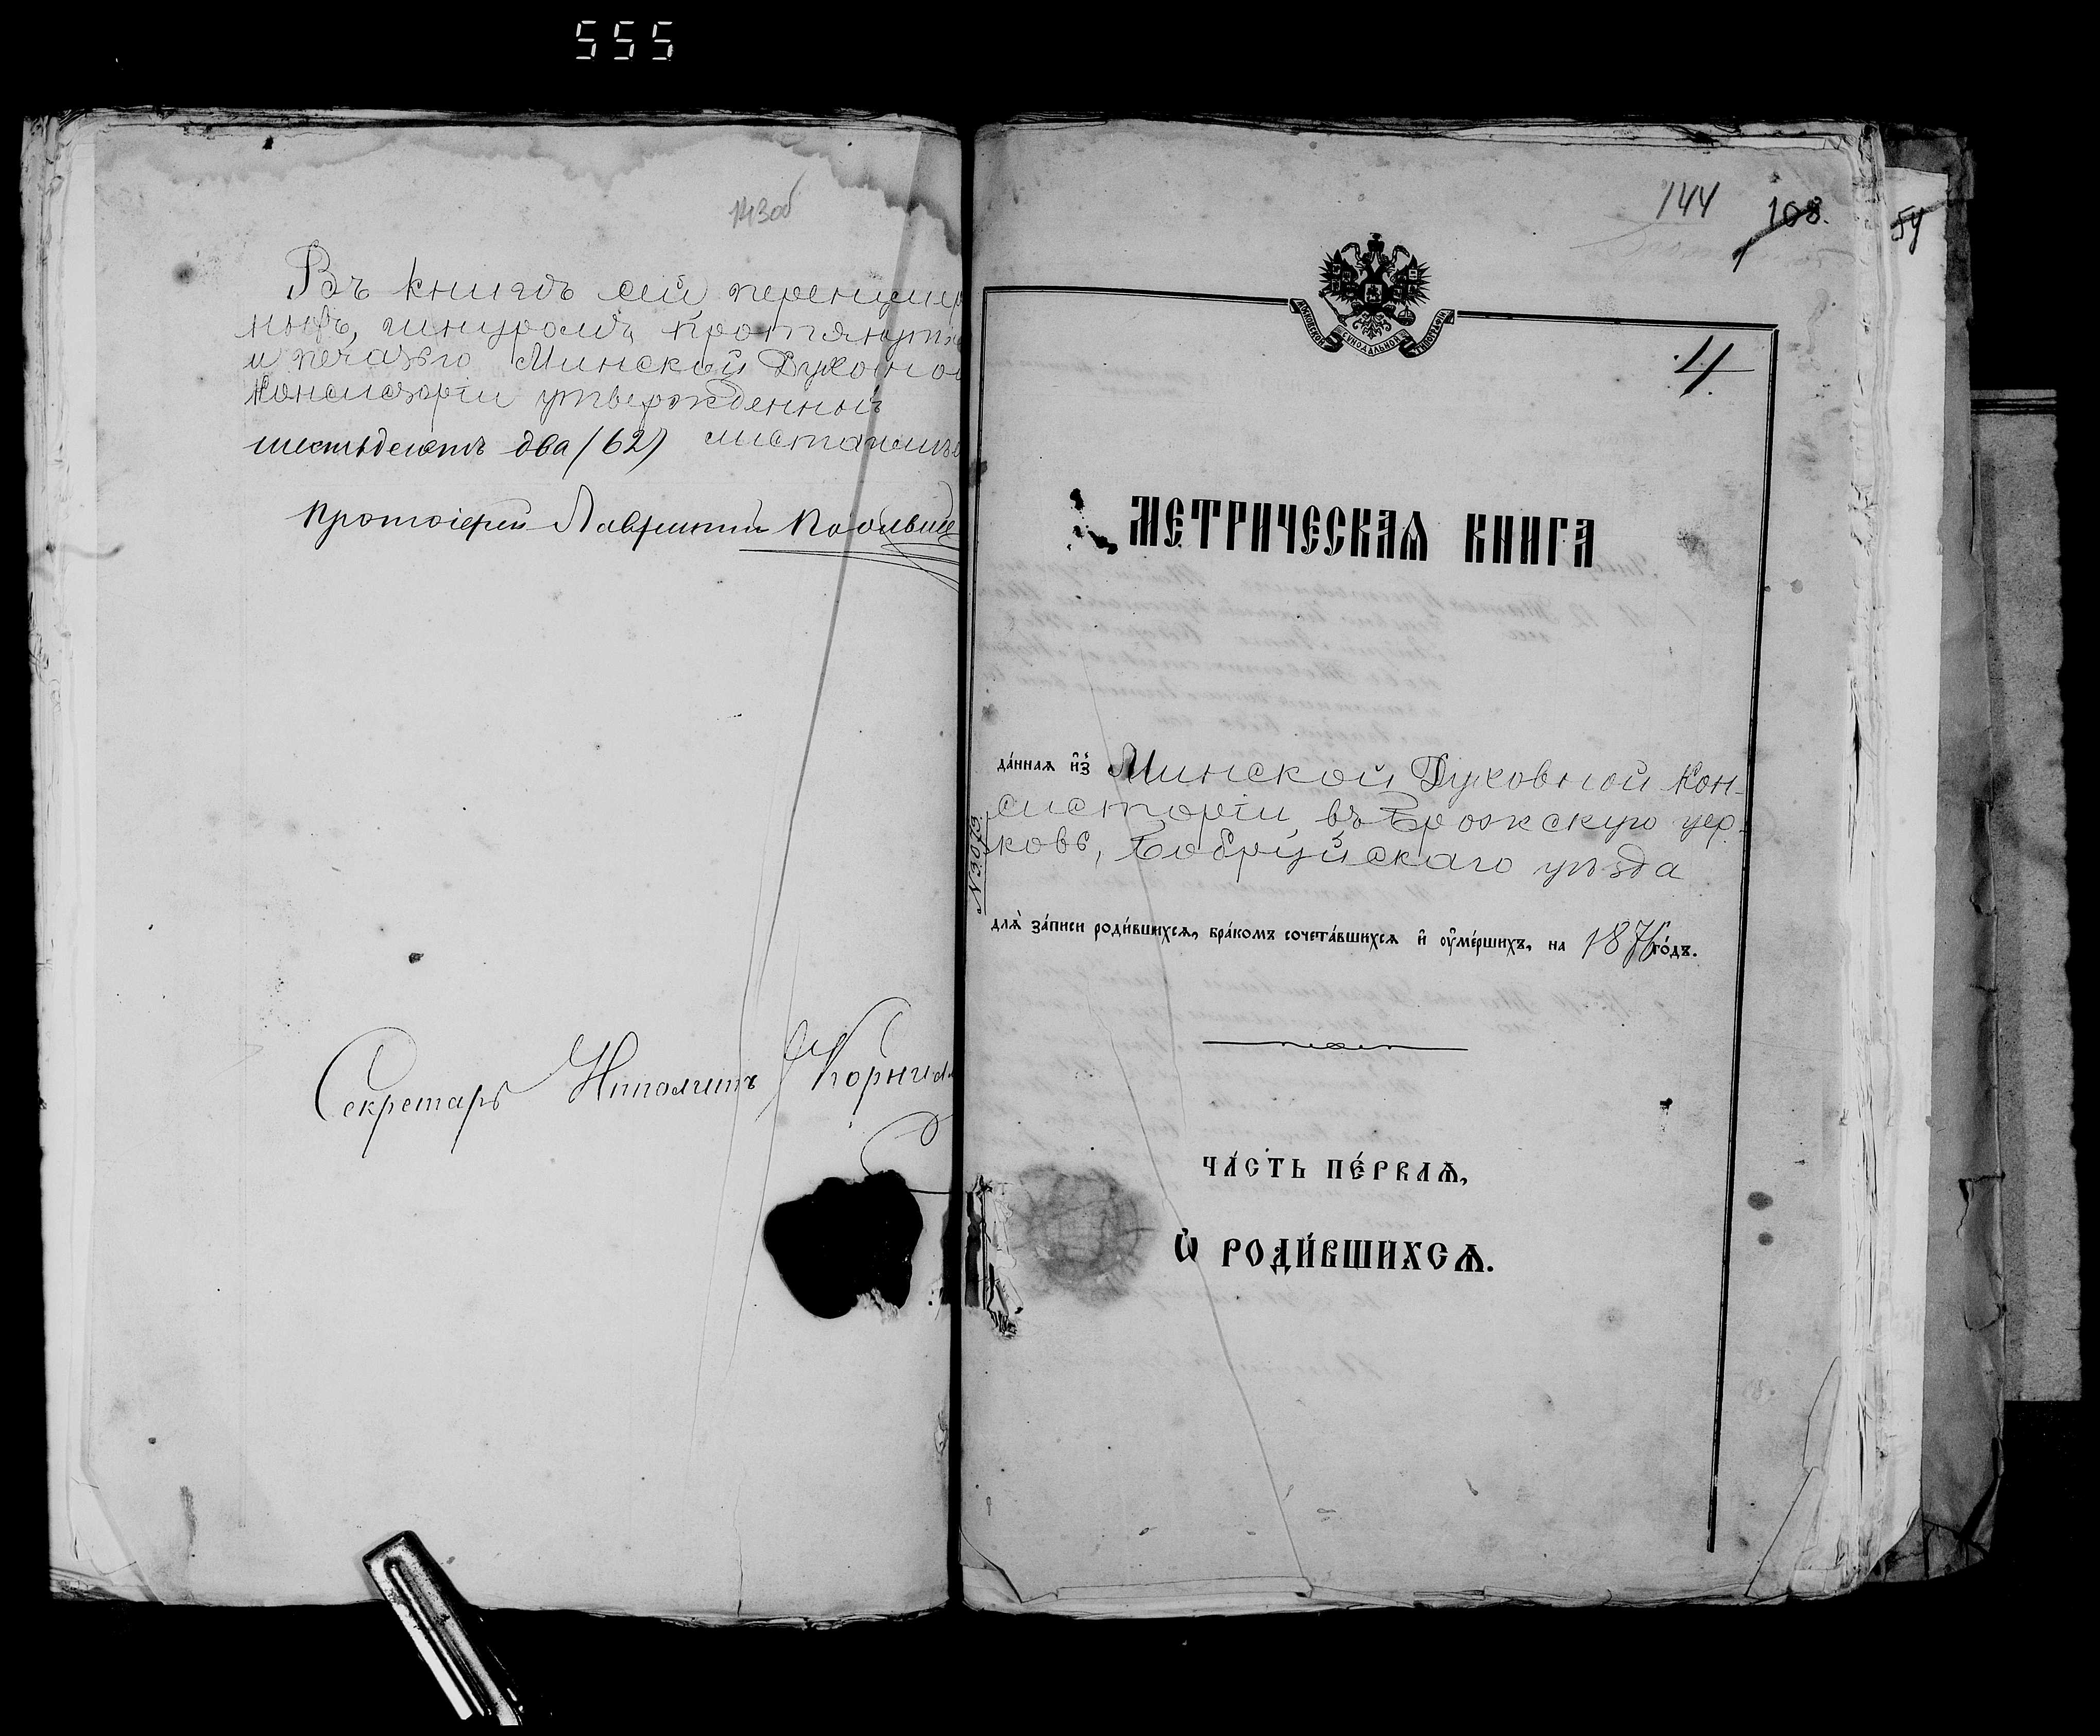 555
143об
Въ книгѣ сей перенумер
ныхъ, шнуромъ протянуты
и печатью Минской Духовной
Консисторіи утвержденныхъ
шестьдесятъ два (62) листа
Протоіерей Лаврентій
Секретарь Ипполитъ Корнил
144 108. 54
МОСКОВСКОЙ СѴНОДАЛЬНОЙ ТИПОГРАФІИ
4.
МЕТРИЧЕСКАѦ КНИГА
да́ннаѧ и҆з̾ Минской Духовной Кон-
систоріи въ Брожскую цер-
ковь, Бобруйскаго уѣзда
№3079.
длѧ̀ за́писи роди́вшихсѧ, бра́комъ сочета́вшихсѧ и҆ оу҆ме́ршихъ, на 1876 го́дъ.
ЧА́СТЬ ПЕ́РВАѦ,
Ѡ҆ РОДИ́ВШИХСѦ.